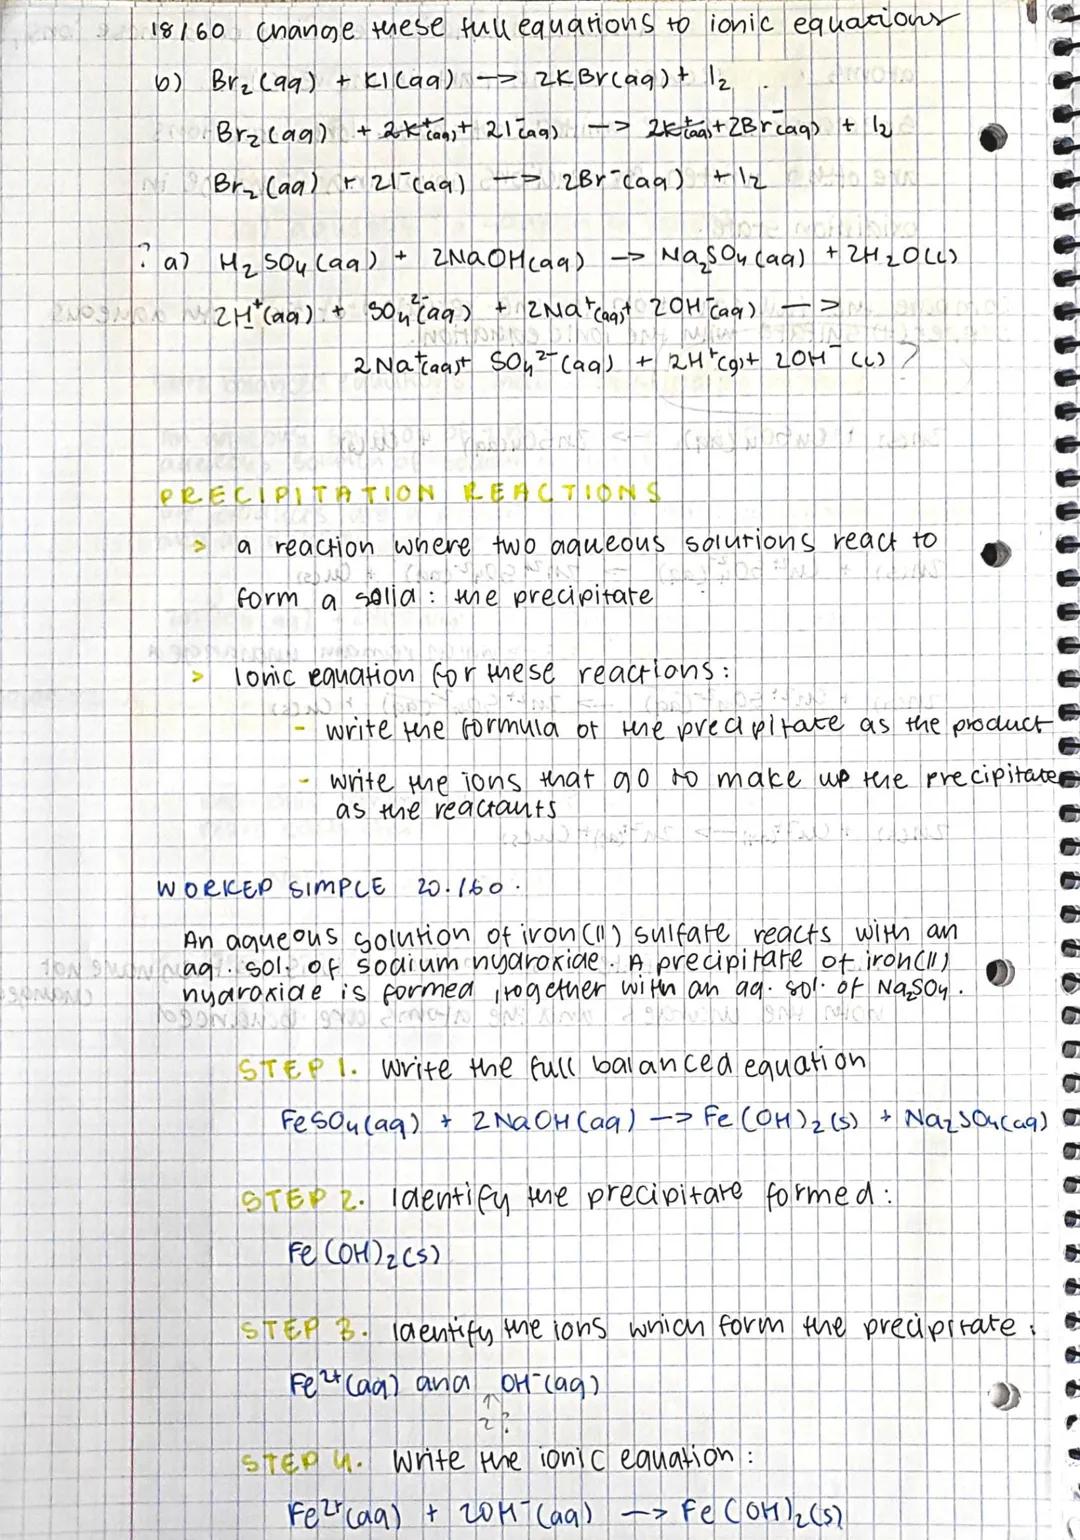 18/60 Change these full equations to ionic equations
b) Br₂(aq) + KI(aq) —> 2KBr(aq) + I₂
Br₂(aq) + 2K⁺(aq) + 2I⁻(aq) —> 2K⁺(aq) + 2Br⁻(aq) + I₂
Br₂(aq) + 2I⁻(aq) —> 2Br⁻(aq) + I₂
? a) H₂SO₄(aq) + 2NaOH(aq) —> Na₂SO₄(aq) + 2H₂O(l)
2H⁺(aq) + SO₄²⁻(aq) + 2Na⁺(aq) + 2OH⁻(aq) —>
2Na⁺(aq) + SO₄²⁻(aq) + 2H⁺(g) + 2OH⁻(l) ?
PRECIPITATION REACTIONS
> a reaction where two aqueous solutions react to
form a solid: the precipitate
> Ionic equation for these reactions:
- write the formula of the precipitate as the product
- write the ions that go to make up the precipitate
as the reactants
WORKED SIMPLE 20./60.
An aqueous solution of iron(II) sulfate reacts with an
aq. sol. of sodium hydroxide. A precipitate of iron(II)
hydroxide is formed, together with an aq. sol. of Na₂SO₄.
STEP 1. Write the full balanced equation
FeSO₄(aq) + 2NaOH(aq) —> Fe(OH)₂(s) + Na₂SO₄(aq)
STEP 2. Identify the precipitate formed:
Fe(OH)₂(s)
STEP 3. Identify the ions which form the precipitate:
Fe²⁺(aq) and OH⁻(aq)
↑
2?
STEP 4. Write the ionic equation:
Fe²⁺(aq) + 2OH⁻(aq) —> Fe(OH)₂(s)